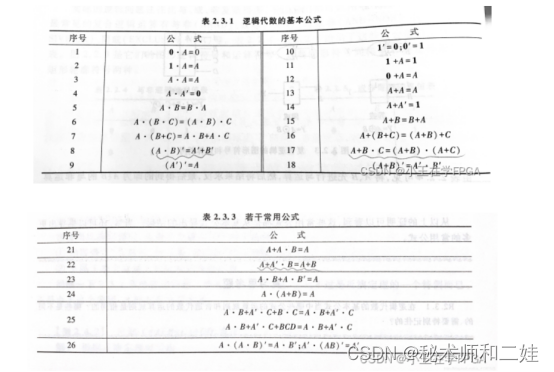 表 2.3.1 逻辑代数的基本公式
序号 公 式 序号 公 式
1 0 · A=0 10 1′=0;0′=1
2 1 · A=A 11 1+A=1
3 A · A=A 12 0+A=A
4 A · A′=0 13 A+A=A
5 A · B=B · A 14 A+A′=1
6 A · (B · C)=(A · B) · C 15 A+B=B+A
7 A · (B+C)=A · B+A · C 16 A+(B+C)=(A+B)+C
8 (A · B)′=A′+B′ 17 A+B · C=(A+B) · (A+C)
9 (A′)′=A 18 (A+B)′=A′ · B′
CSDN @小王在学FPGA
表 2.3.3 若干常用公式
序号 公 式
21 A+A · B=A
22 A+A′ · B=A+B
23 A · B+A · B′=A
24 A · (A+B)=A
25 A · B+A′ · C+B · C=A · B+A′ · C
A · B+A′ · C+BCD=A · B+A′ · C
26 A · (A · B)′=A · B′;A′ · (AB)′=A′
CSDN @秘术师和二娃